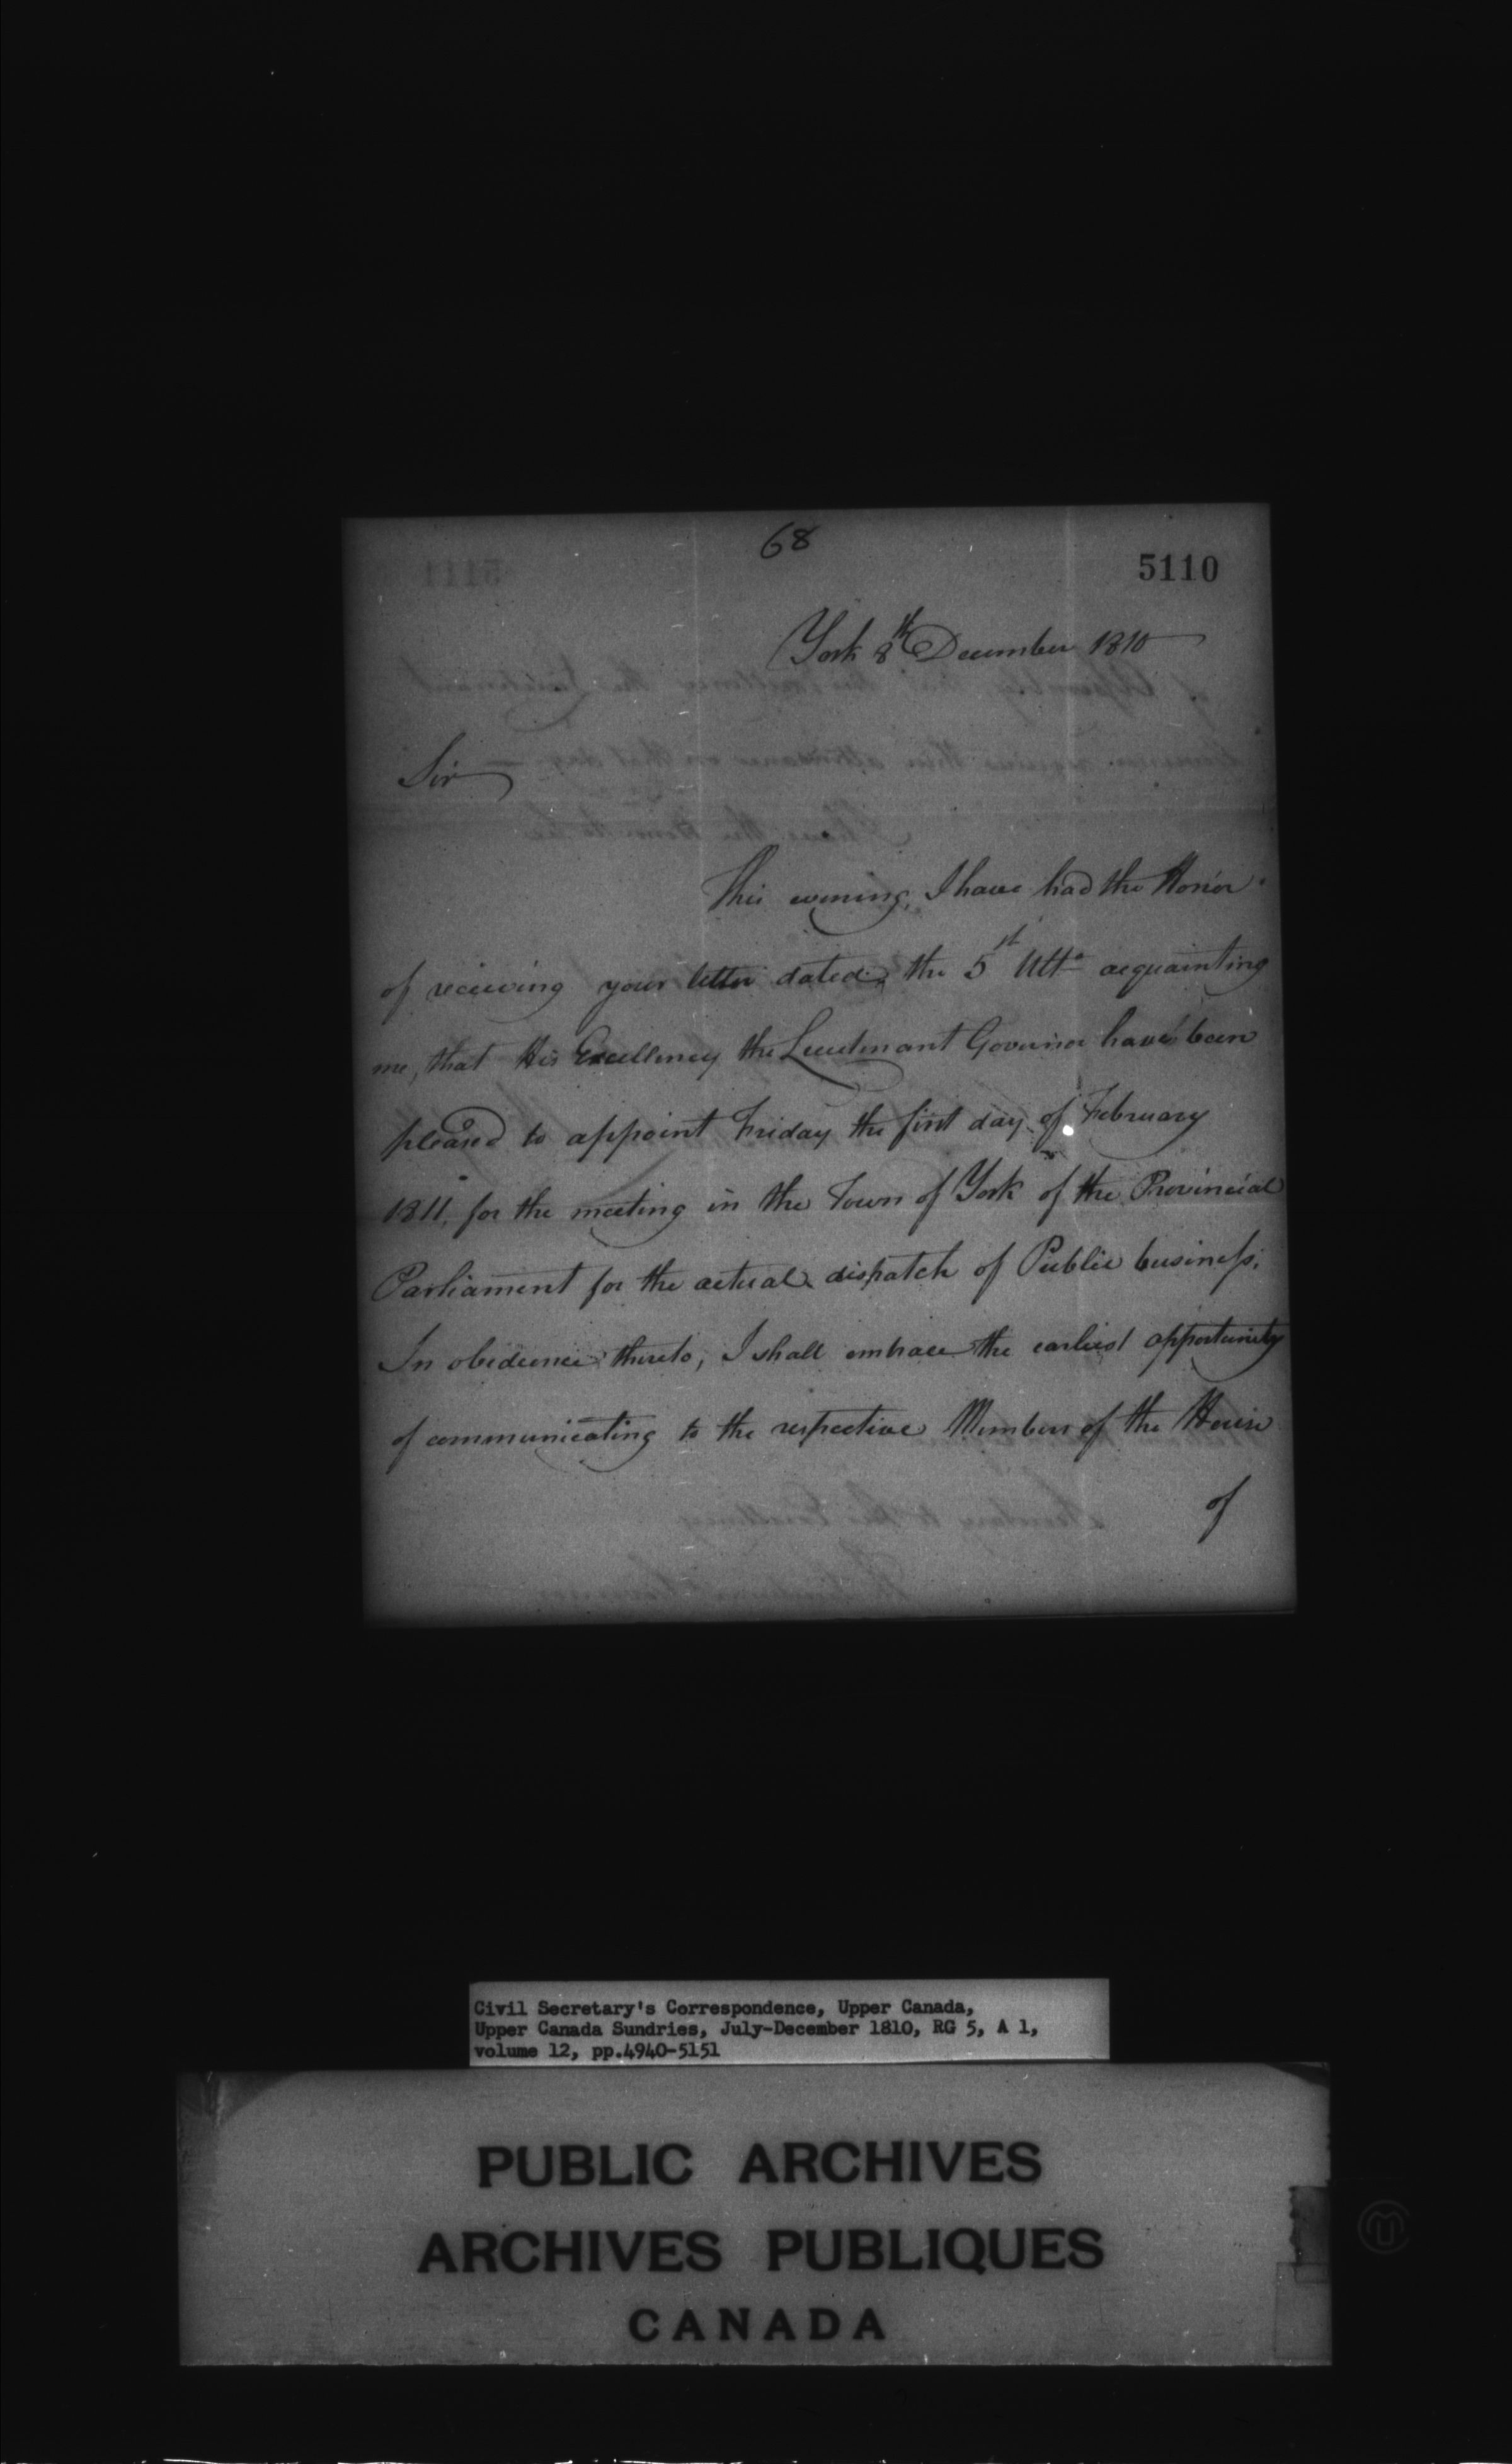 68
5110
York 8th December 1810
Sir
This evening, I have had the Honor
of receiving your letter dated the 5st Ulto acquainting
me, that His Excellency the Lieutenant Governor have been
pleased to appoint Friday the first day of February
1811, for the meeting in the Town of York of the Provincial
Parliament for the actual dispatch of Public business.
In obedience thereto, I shall embrace the earliest opportunity
of communicating to the respective Members of the House
of
Civil Secretary's Correspondence, Upper Canada,
Upper Canada Sundries, July-December 1810, RG 5, A 1,
volume 12, pp.4940-5151
PUBLIC ARCHIVES
ARCHIVES PUBLIQUES
CANADA